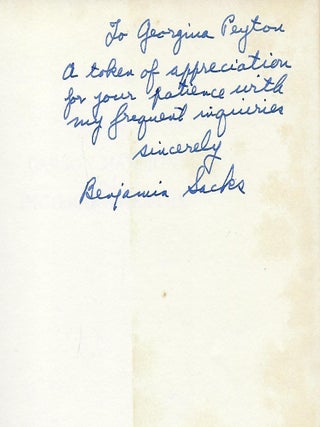 To Georgina Peyton
A token of appreciation
for your patience with
my frequent inquiries
sincerely
Benjamin Sacks